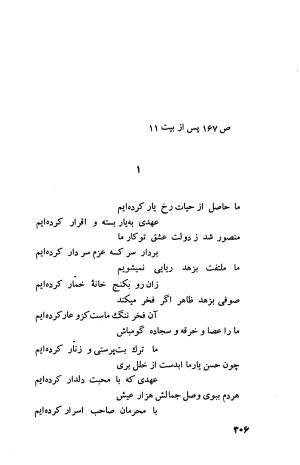 ص ۱۶۷ پس از بیت ۱۱
۱
ما حاصل از حیات رخ یار کرده‌ایم
عهدی به‌یار بسته و اقرار کرده‌ایم
منصور شد ز دولت عشق تو کار ما
بردار سر که عزم سر دار کرده‌ایم
ما ملتفت بزهد ریایی نمیشویم
زان رو بکنج خانهٔ خمّار کرده‌ایم
صوفی بزهد ظاهر اگر فخر میکند
آن فخر ننگ ماست کزو عار کرده‌ایم
ما را عصا و خرقه و سجاده گو مباش
ما ترک بت‌پرستی و زنّار کرده‌ایم
چون حسن یار ما ابدست از خلل بری
عهدی که با محبت دلدار کرده‌ایم
هردم ببوی وصل جمالش هزار عیش
با محرمان صاحب اسرار کرده‌ایم
۳۰۶